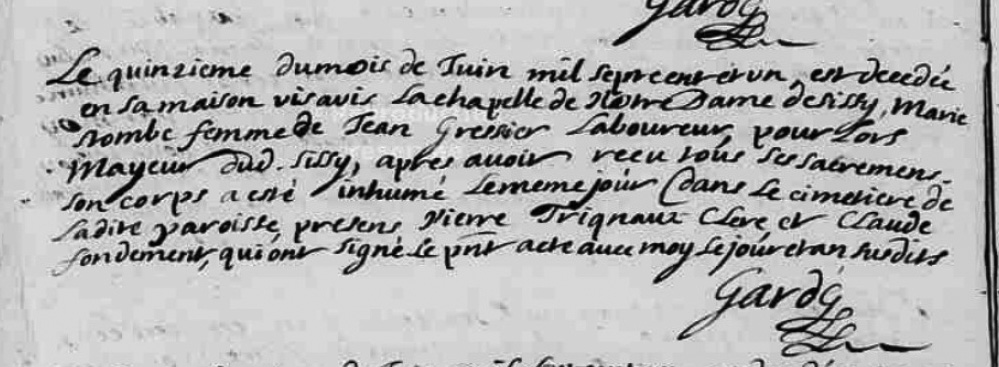 Gardé
Le quinzieme dumois de Juin mil septcentetun, est decedée
en sa maison visavis Lachapelle de Notre Dame de Sissy, Marie
Nombe femme de Jean Gressier Laboureur, pour lors
Mayeur dud. Sissy, apres avoir receu tous ses sacremens.
son corps a esté inhumé Lememejour dans Le cimetiere de
Ladite paroisse, presens Pierre Trignaux Clerc et Claude
fondement, qui ont signé Le pnt acte avec moy Lejour et an susdits
Gardé